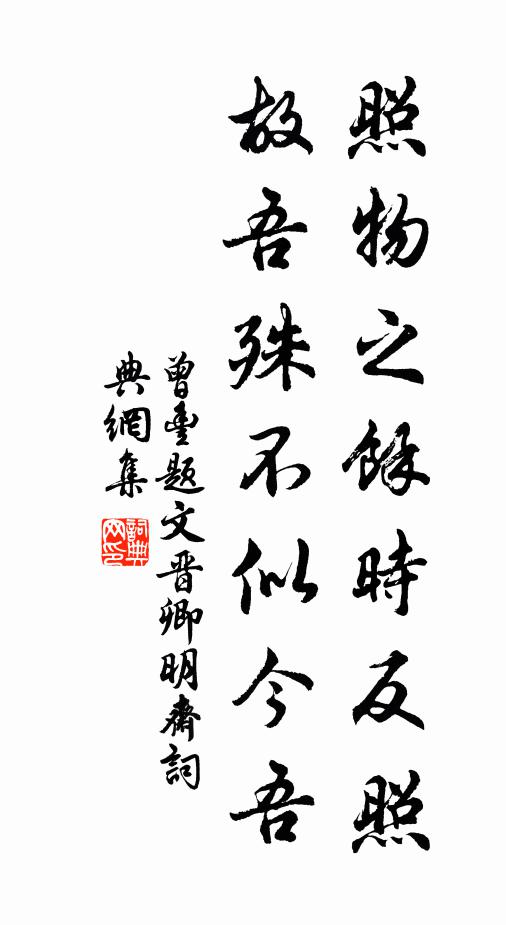 照物之餘時反照
故吾殊不似今吾
曾豐題文晉卿明齋詞
典網集
詞典
网印